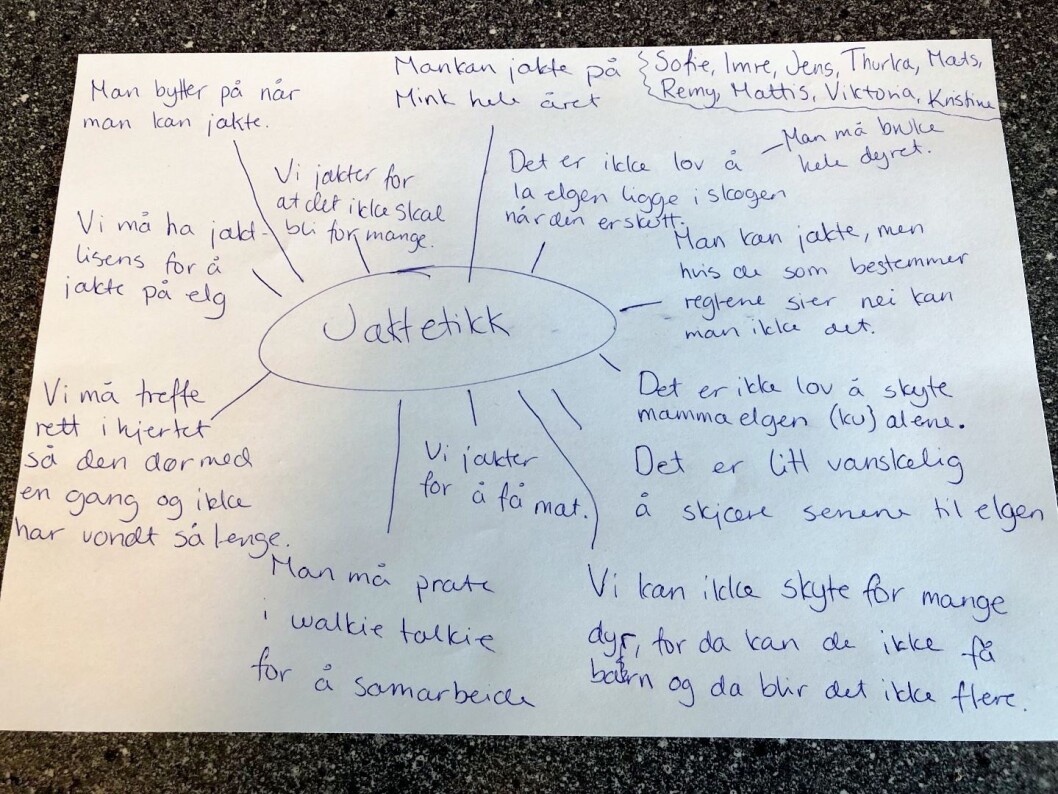 Man bytter på når
man kan jakte.
Mankan jakte på
Mink hele året
Sofie, Imre, Jens, Thurka, Mats,
Remy, Mattis, Viktoria, Kristine
Vi jakter for
at det ikke skal
bli for mange.
Det er ikke lov å
la elgen ligge i skogen
når den er skutt.
Man må bruke
hele dyret.
Vi må ha jakt-
lisens for å
jakte på elg
Man kan jakte, men
hvis de som bestemmer
reglene sier nei kan
man ikke det.
Jaktetikk
Vi må treffe
rett i hjertet
så den dør med
en gang og ikke
har vondt så lenge.
Det er ikke lov å skyte
mamma elgen (ku) alene.
Vi jakter
for å få mat.
Det er litt vanskelig
å skjære senene til elgen
Man må prate
i walkie talkie
for å samarbeide
Vi kan ikke skyte for mange
dyr, for da kan de ikke få
barn og da blir det ikke flere.